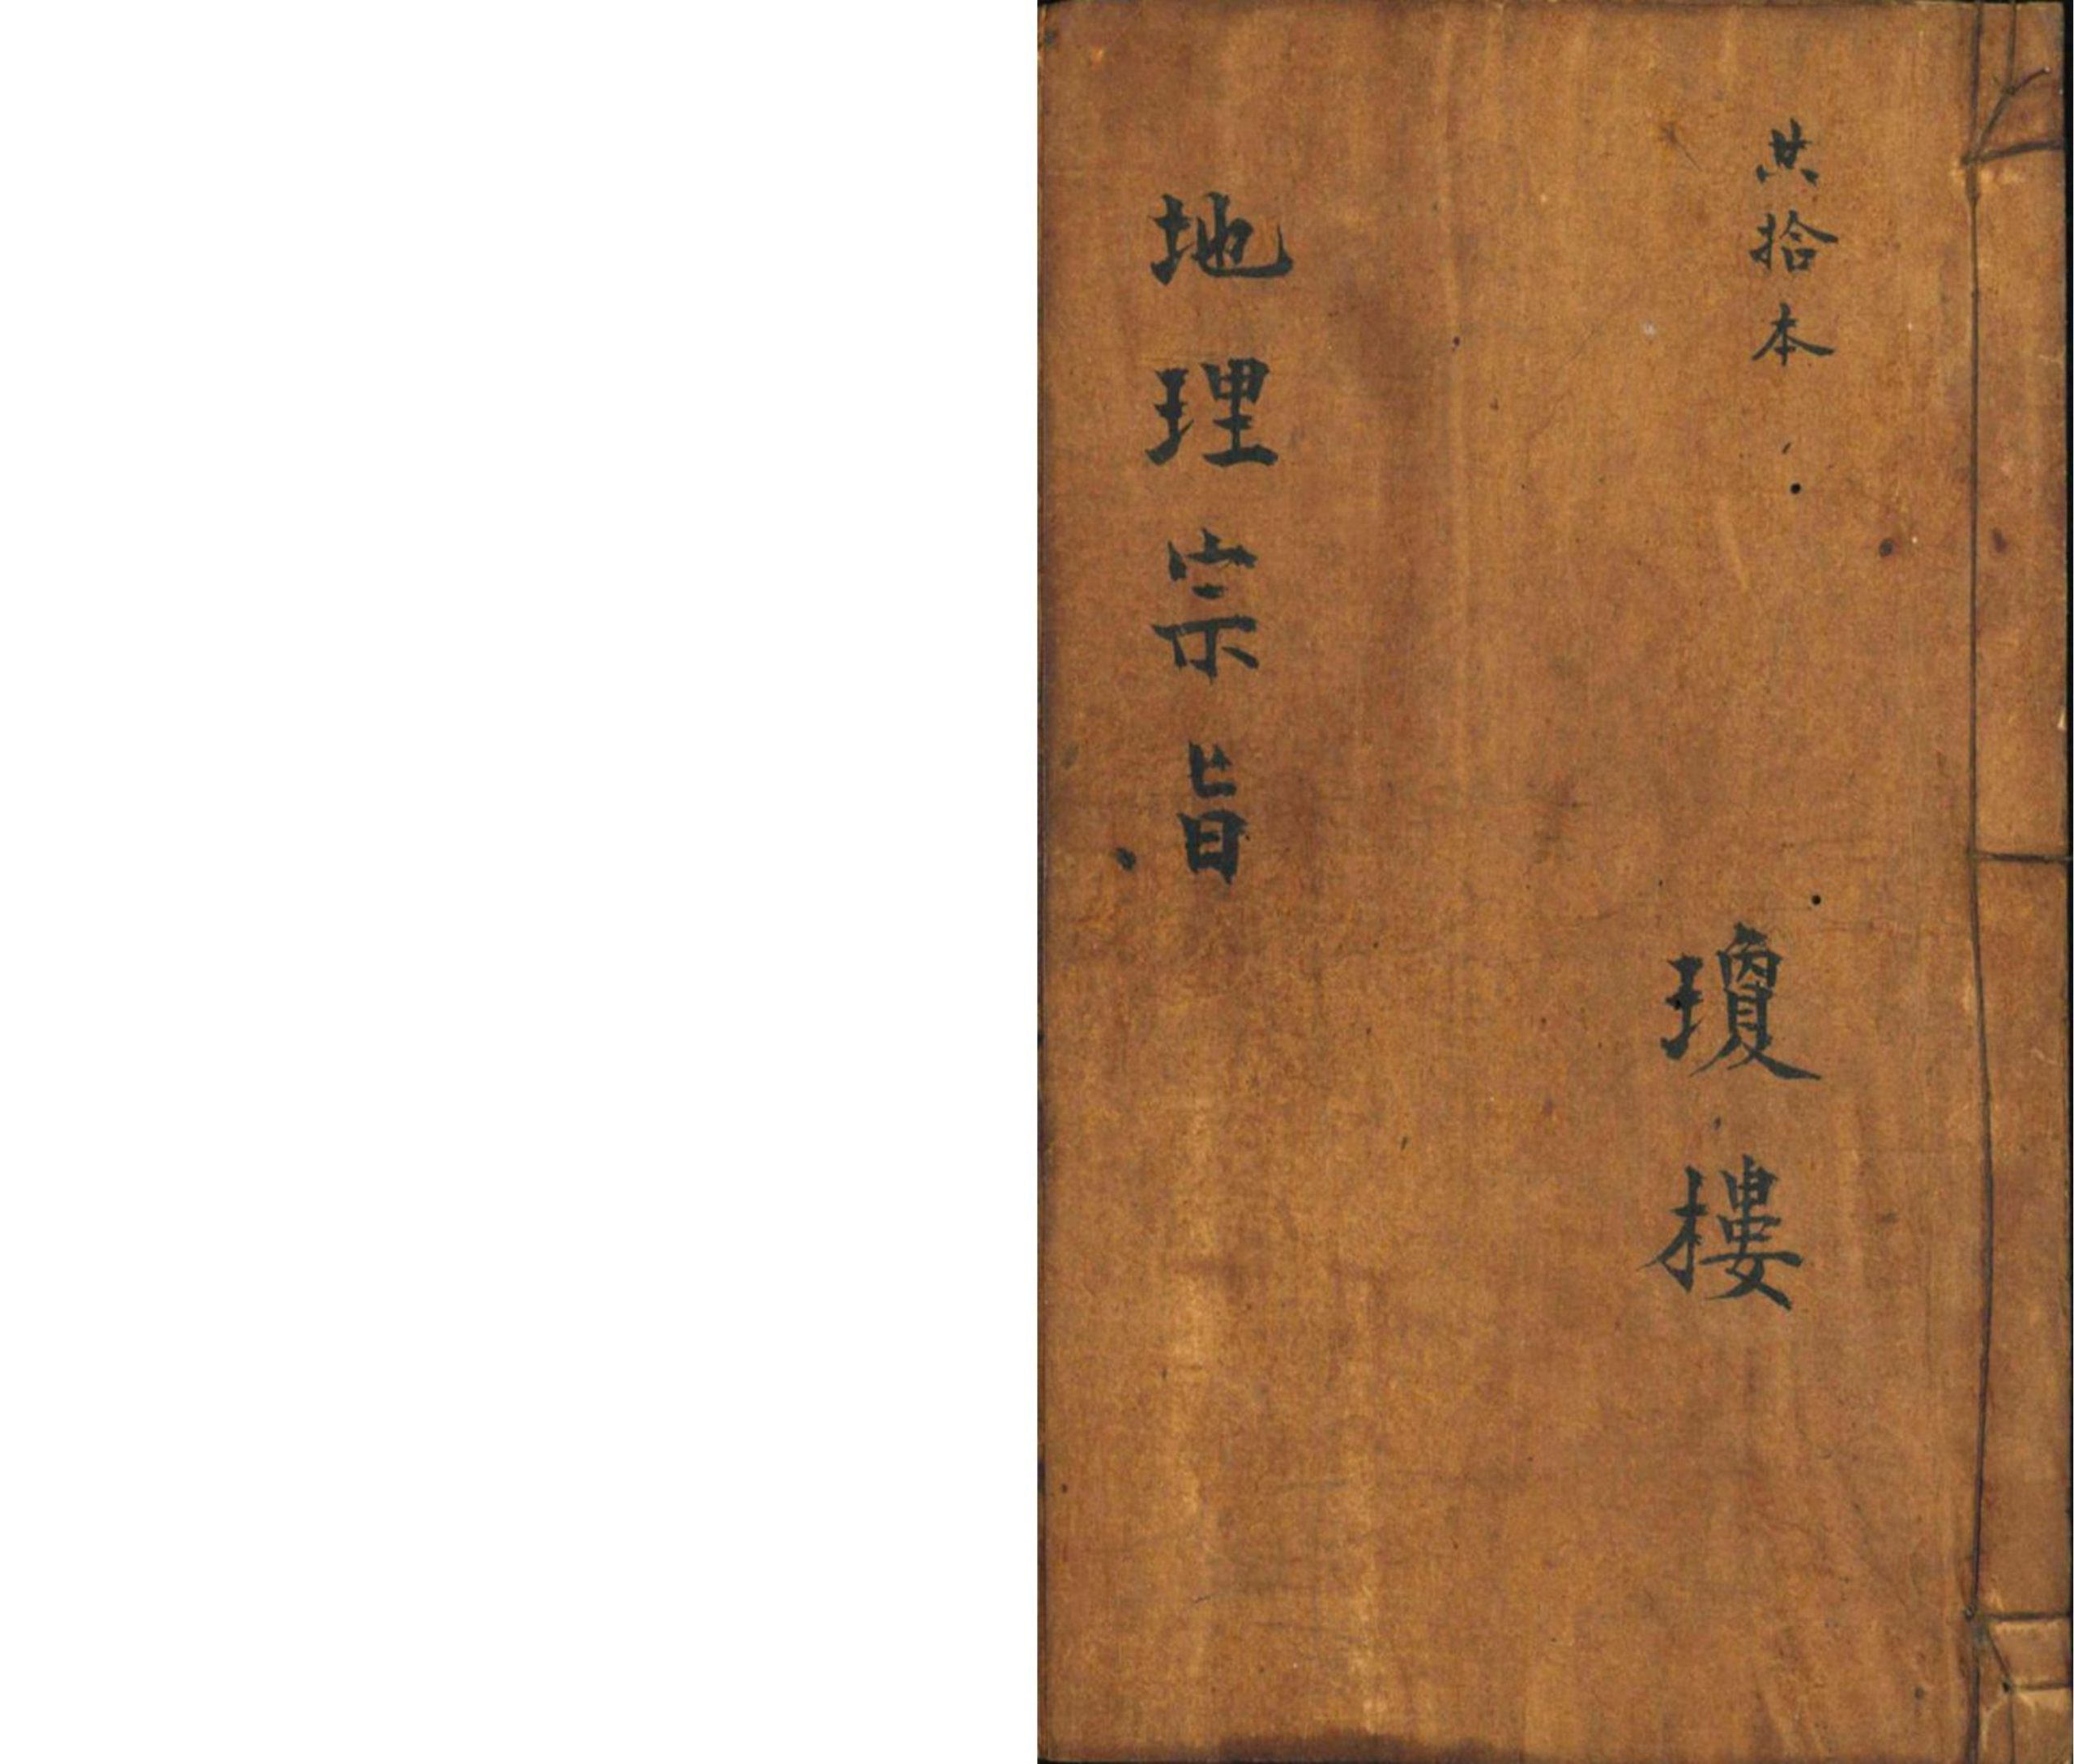 共拾本
瓊樓
地理宗旨